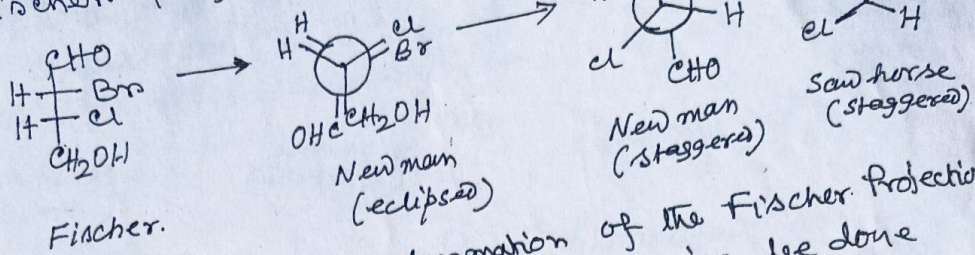 CHO
H Br
H Cl
CH2OH
Fischer.
H Cl
H Br
OHC CH2OH
New man
(eclipsed)
H
Cl
CHO
New man
(staggered)
Cl H
Saw horse
(staggered)
of the Fischer Projectio
be done